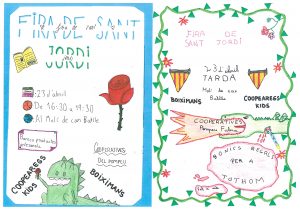 FIRA DE SANT
JORDI
:23 d'abril
:De 16:30 a 19:30
:Al Molí de can Batlle
COOPERATIVES
DEL POMPEU
COOPEAREGS
KIDS
BOIXIMANS
FIRA DE
SANT JORDI
23 d'abril
TARDA
Molí de can
Batlle
BOIXIMANS
COOPEAREGS
KIDS
COOPERATIVES
Pompeu Fabra
BONICS REGALS
PER A
TOTHOM